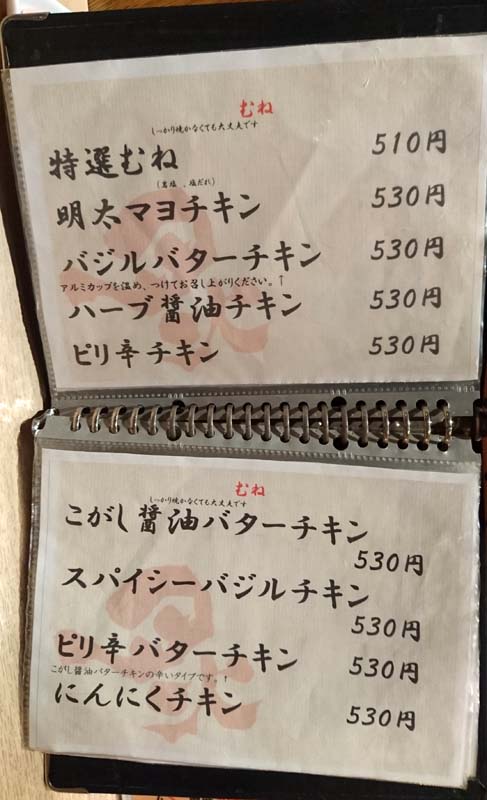 むね
しっかり焼かなくても大丈夫です
特選むね 510円
(岩塩 、塩だれ)
明太マヨチキン 530円
バジルバターチキン 530円
アルミカップを温め、つけてお召し上がりください。↑
ハーブ醤油チキン 530円
ピリ辛チキン 530円
むね
しっかり焼かなくても大丈夫です
こがし醤油バターチキン
530円
スパイシーバジルチキン
530円
ピリ辛バターチキン 530円
こがし醤油バターチキンの辛いタイプです。↑
にんにくチキン 530円